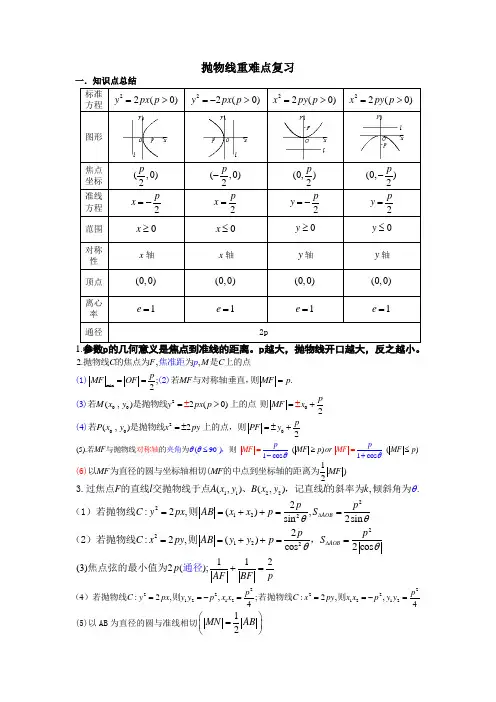 抛物线重难点复习
一．知识点总结
标准方程 y²=2px(p>0) y²=-2px(p>0) x²=2py(p>0) x²=2py(p>0)
图形
焦点坐标 (p/2,0) (-p/2,0) (0,p/2) (0,-p/2)
准线方程 x=-p/2 x=p/2 y=-p/2 y=p/2
范围 x≥0 x≤0 y≥0 y≤0
对称性 x轴 x轴 y轴 y轴
顶点 (0,0) (0,0) (0,0) (0,0)
离心率 e=1 e=1 e=1 e=1
通径 2p
1.参数p的几何意义是焦点到准线的距离。p越大，抛物线开口越大，反之越小。
2.抛物线C的焦点为F,焦准距为p,M是C上的点
(1)|MF|min=|OF|=p/2;(2)若MF与对称轴垂直,则|MF|=p.
(3)若M(x₀,y₀)是抛物线y²=±2px(p>0)上的点 则|MF|=±x₀+p/2
(4)若P(x₀,y₀)是抛物线x²=±2py上的点，则|PF|=±y₀+p/2
(5).若MF与抛物线对称轴的夹角为θ(θ≤90°)，则 |MF|=p/(1-cosθ) (|MF|≥p)or|MF|=p/(1+cosθ) (|MF|≤p)
(6)以MF为直径的圆与坐标轴相切(MF的中点到坐标轴的距离为1/2|MF|)
3.过焦点F的直线l交抛物线于点A(x₁,y₁)、B(x₂,y₂)，记直线l的斜率为k,倾斜角为θ.
（1）若抛物线C:y²=2px,则|AB|=(x₁+x₂)+p=2p/sin²θ,S△AOB=p²/2sinθ
（2）若抛物线C:x²=2py,则|AB|=(y₁+y₂)+p=2p/cos²θ，S△AOB=p²/2|cosθ|
(3)焦点弦的最小值为2p(通径);1/|AF|+1/|BF|=2/p
（4）若抛物线C:y²=2px,则y₁y₂=-p²,x₁x₂=p²/4;若抛物线C:x²=2py,则x₁x₂=-p²,y₁y₂=p²/4
(5)以AB为直径的圆与准线相切(|MN|=1/2|AB|)